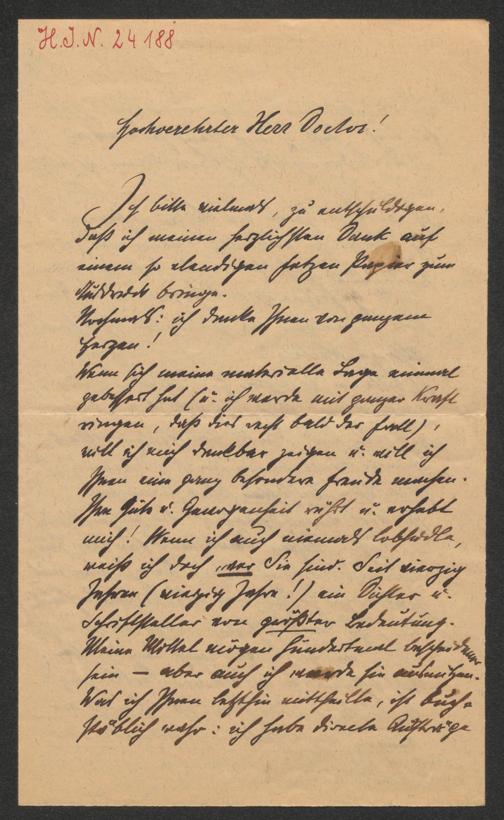 H.I.N. 24188
Hochverehrter Herr Doctor!
Ich bitte vielmals, zu entschuldigen,
daß ich meinen herzlichsten Dank auf
einem so elendigen Fetzen Papier zum
Ausdruck bringe.
Nochmals: ich danke Ihnen von ganzem
Herzen!
Wenn sich meine materielle Lage einmal
gebessert hat (u. ich werde mit ganzer Kraft
ringen, daß dies recht bald der Fall),
will ich mich dankbar zeigen u. will ich
Ihnen eine ganz besondere Freude machen.
Ihre Güte u. Gewogenheit rührt u. erhebt
mich! Wenn ich auch niemals lobhudle,
weiß ich doch, wer Sie sind. Seit vierzig
Jahren (vierzig Jahre!) ein Dichter u.
Schriftsteller von größter Bedeutung.
Meine Mittel mögen hundertmal bescheidener
sein — aber auch ich werde sie ausnützen.
Was ich Ihnen letzthin mittheilte, ist buch-
stäblich wahr: ich habe directe Aufträge